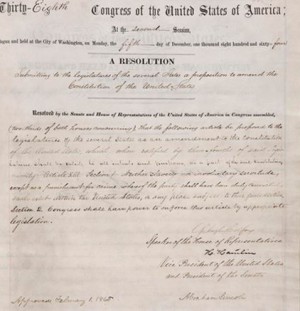 Thirty-Eighth Congress of the United States of America;
At the second Session,
begun and held at the City of Washington, on Monday, the fifth day of December, one thousand eight hundred and sixty-four
A RESOLUTION
Submitting to the legislatures of the several States a proposition to amend the
Constitution of the United States
Resolved by the Senate and House of Representatives of the United States of America in Congress assembled,
(two thirds of both houses concurring) that the following article be proposed to the
legislatures of the several States as an amendment to the Constitution
of the United States, which, when ratified by three fourths of said
shall be valid, to all intents and purposes, as a part of the said Constitution
namely: Article XIII. Section 1. Neither slavery nor involuntary servitude,
except as a punishment for crime whereof the party shall have been duly convicted,
shall exist within the United States, or any place subject to their jurisdiction.
Section 2. Congress shall have power to enforce this article by appropriate
legislation.
Schuyler Colfax
Speaker of the House of Representatives
H. Hamlin
Vice President of the United States
and President of the Senate
Approved February 1, 1865.
Abraham Lincoln